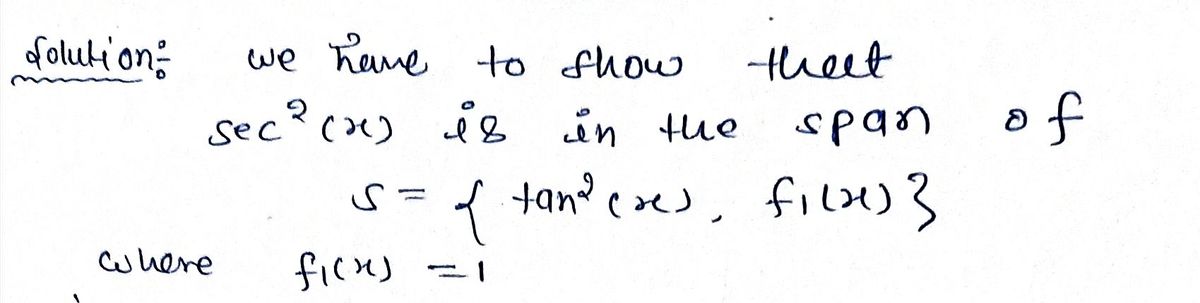 Solution:- we have to show that
sec²(x) is in the span of
S = { tan²(x), f₁(x) }
where f₁(x) = 1